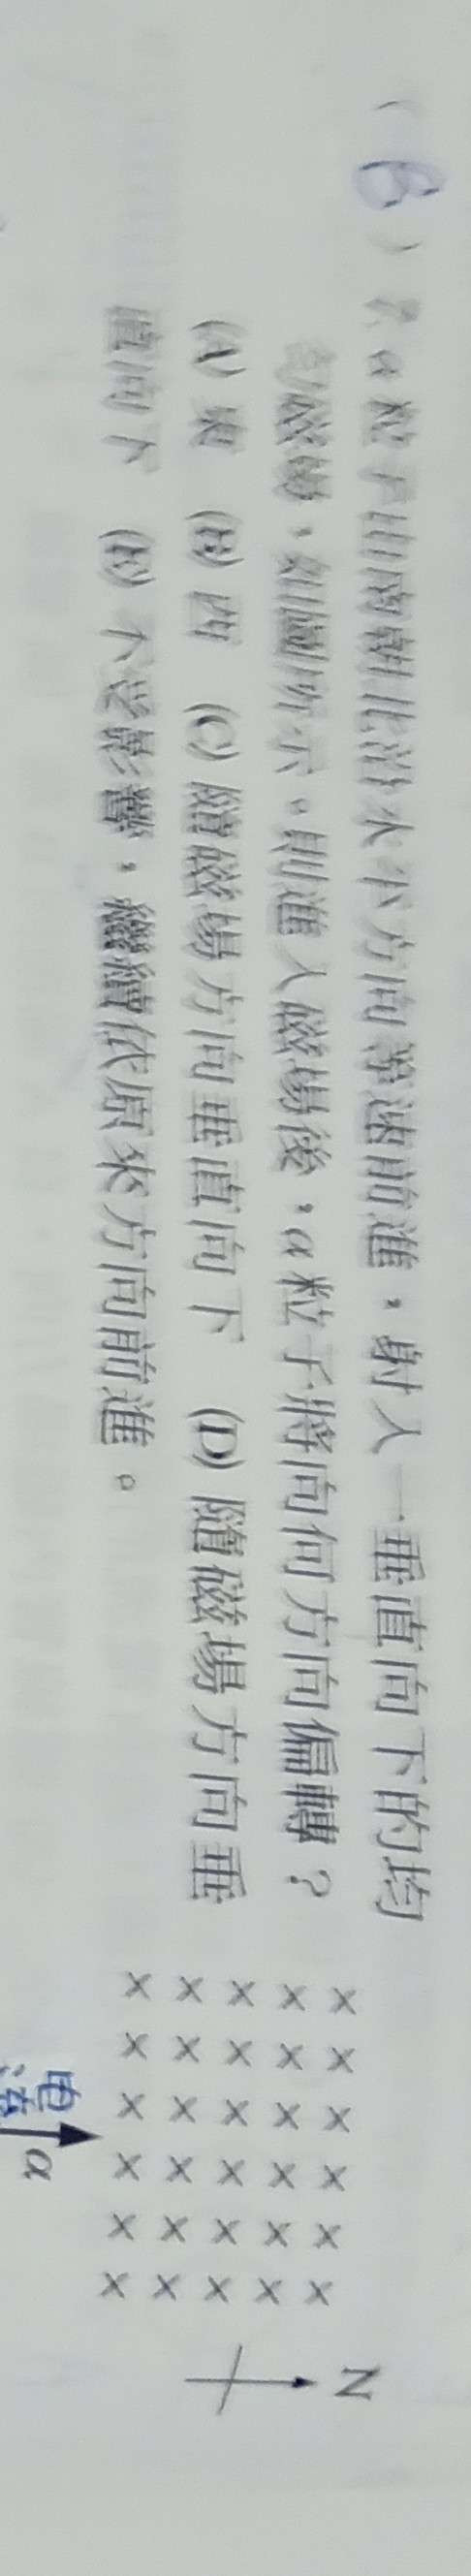 ( B ) 8. α粒子由南朝北沿水平方向等速前進,射入一垂直向下的均
勻磁場,如圖所示。則進入磁場後,α粒子將向何方向偏轉?
(A) 東 (B) 西 (C) 隨磁場方向垂直向下 (D) 隨磁場方向垂
直向下 (E) 不受影響,繼續依原來方向前進。
N
× × × × × ×
× × × × × ×
× × × × × ×
× × × × × ×
× × × × × ×
α